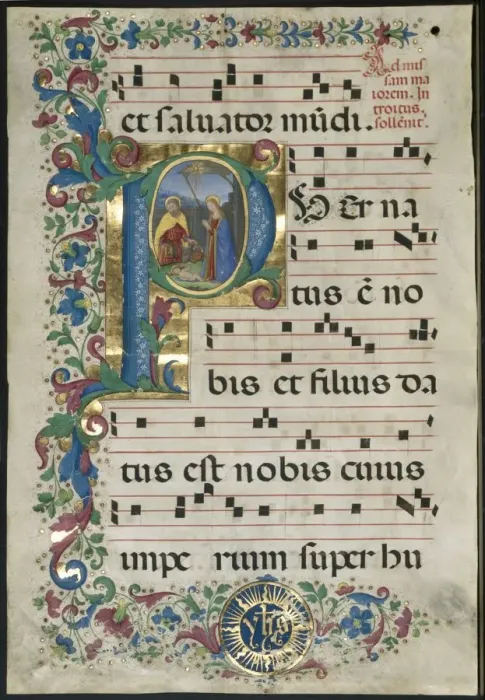 et saluator mūdi.
Ad mis
sam ma
iorem. In
troitus.
sollēnit.
P U Er na
tus ē no
bis et filius da
tus est nobis cuius
impe rium super hu
yhs